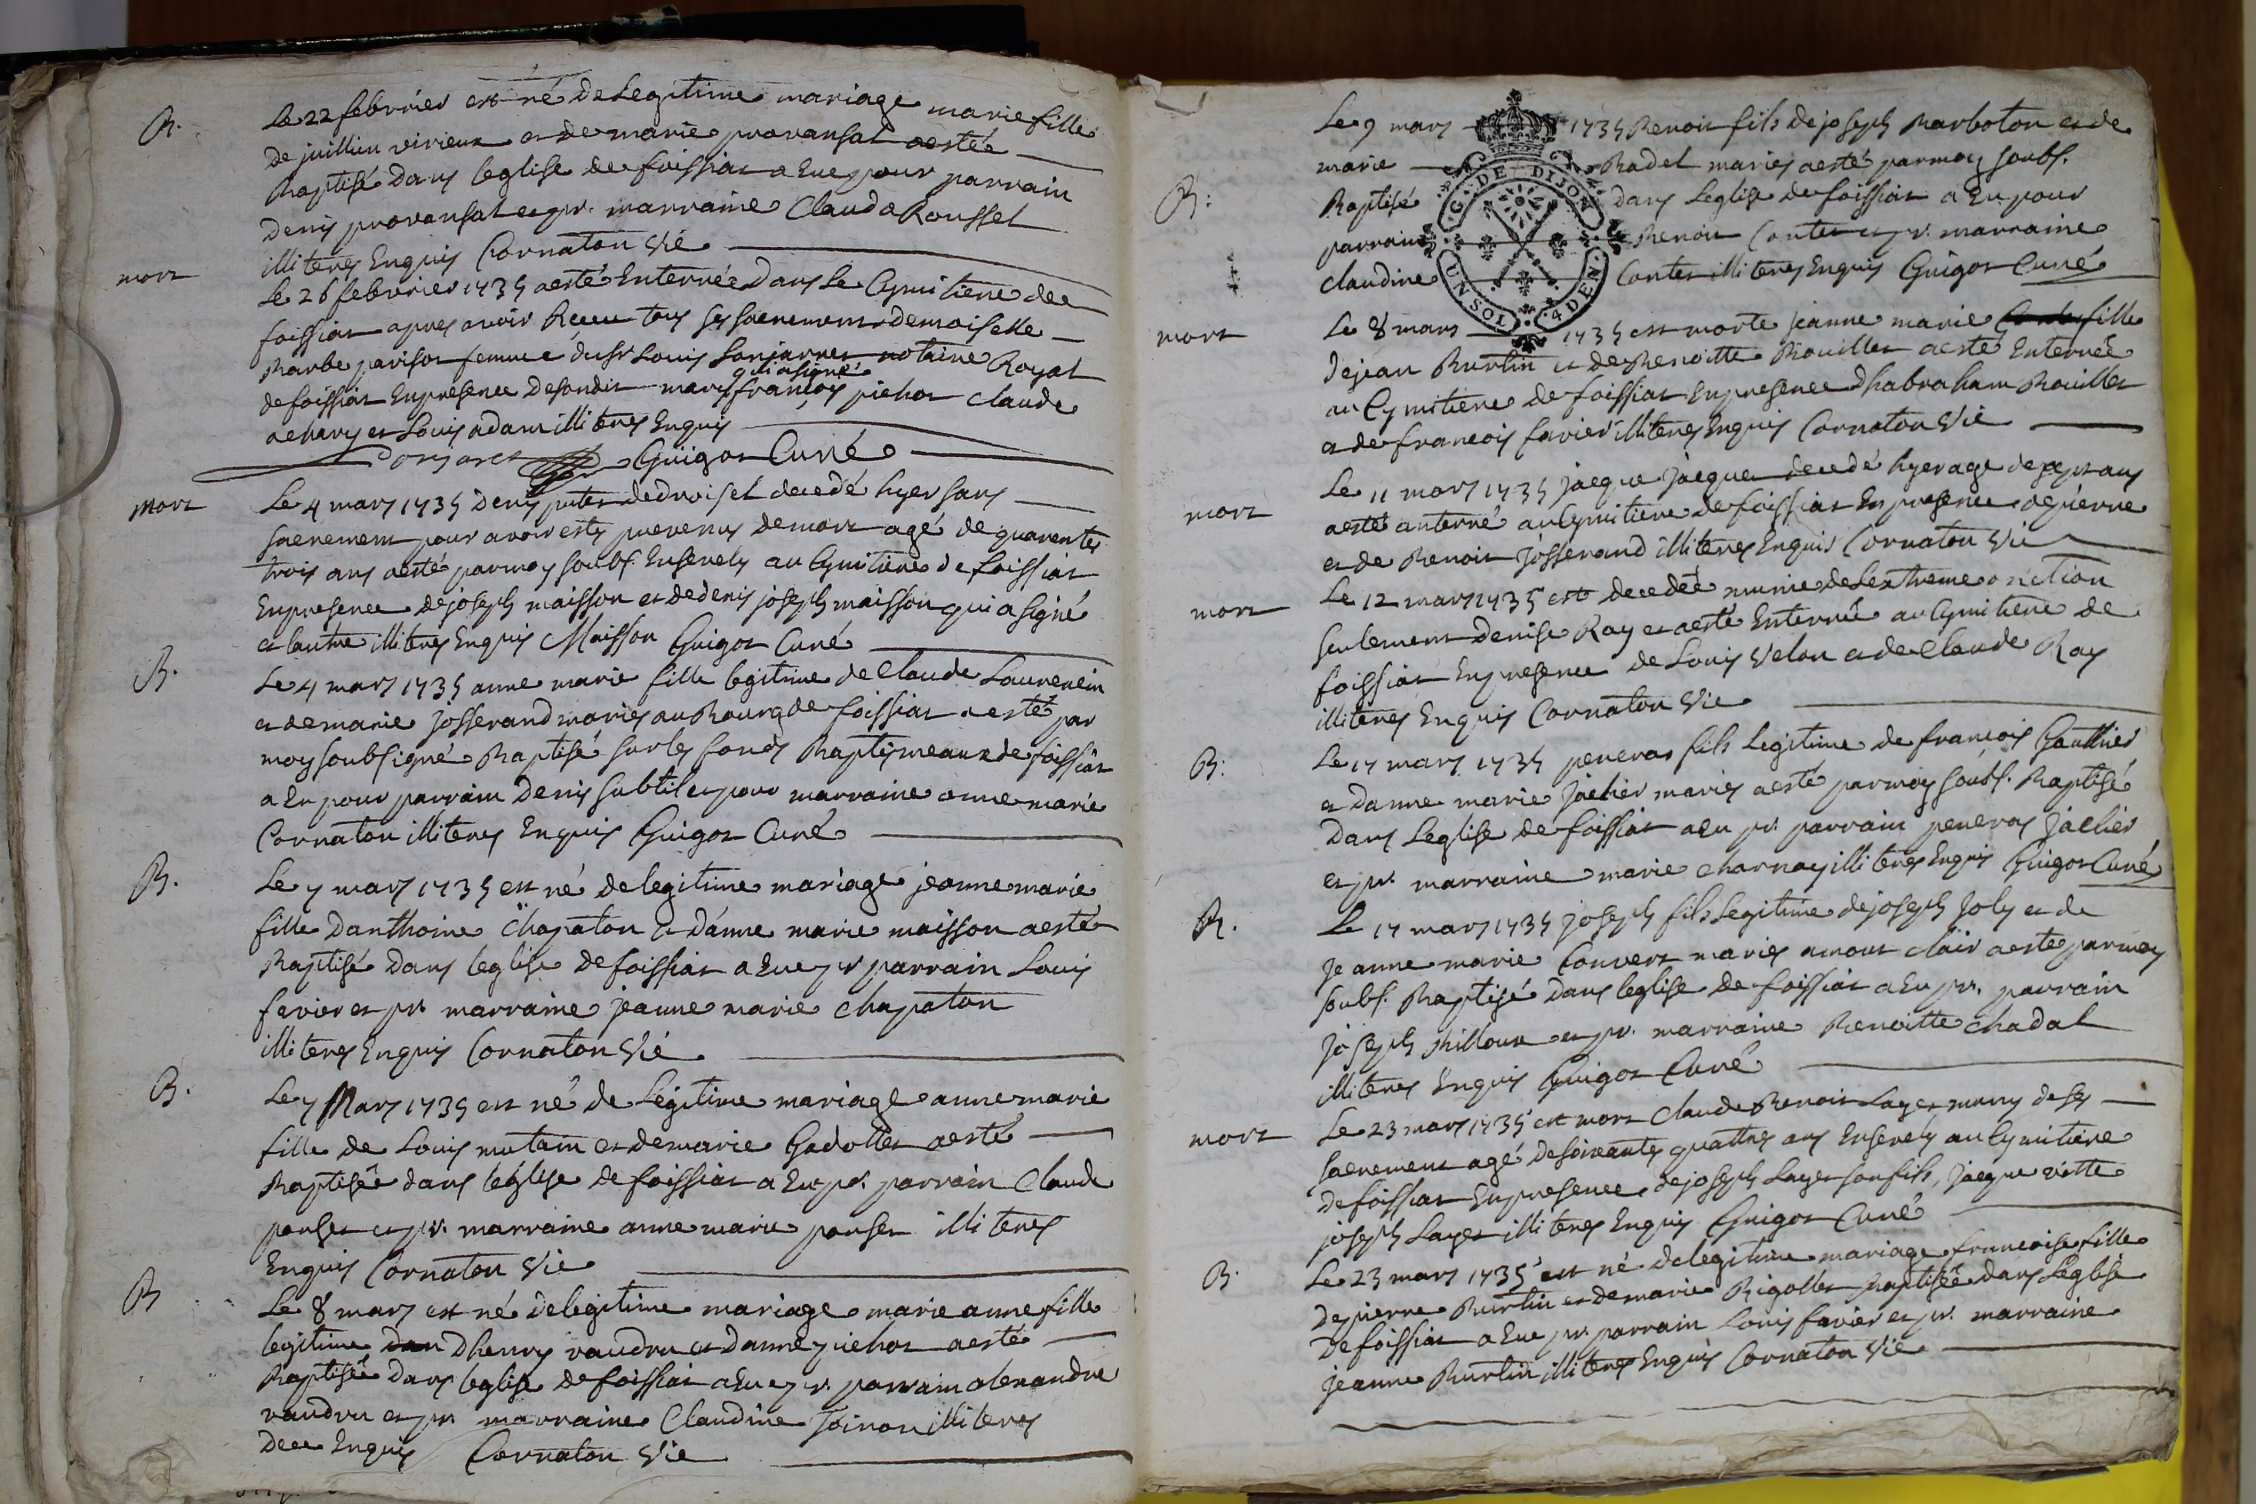 B.
Le 22 febvrier est né de Legitime mariage marie fille
de juillien virieux et de marie provansat a esté
Baptisé dans leglise de foissiat a Eue pour parrain
denis provansat et pr. marraine Clauda Roussel
illiteres Enquis Cornaton Vié
mort
Le 26 febvrier 1735 a esté Enterrée dans Le Cymitiere de
foissiat apres avoir Receu tous ses sacrements demoiselle
Barbe parisot femme du Sr Louis notaire Royal
qui a signé
de foissiat Enpresence desondit mary francois pichot claude
et Louis adam illiteres Enquis
Guigot Curé
mort
Le 4 mars 1735 denis decedé hyer sans
sacrement pour avoir estés prevenus de mort agé de quarentes
trois ans a esté par moy soubs. Ensevely au Cymitiere de foissiat
Enpresence de joseph maisson et de denis joseph maisson qui a signé
et lautre illiteres Enquis Maisson Guigot Curé
B.
Le 4 mars 1735 anne marie fille legitime de Claude Laurencin
et de marie josserand mariés au Bourg de foissiat a esté par
moy soubsigné Baptisé sur les fonds Baptismeaux de foissiat
a Eu pour parrain Denis subtil et pour marraine anne marie
Cornaton illiteres Enquis Guigot Curé
B.
Le 7 mars 1735 est né de legitime mariage jeanne marie
fille danthoine Chapaton et danne marie maisson a esté
Baptisé dans leglise de foissiat a Eue pr parrain Louis
favier et pr. marraine jeanne marie Chapaton
illiteres Enquis Cornaton Vié
B.
Le 7 Mars 1735 est né de Légitime mariage anne marie
fille de Louis mutain et de marie Gadollet a esté
Baptiseé dans léglise de foissiat a Eue pr. parrain Claude
ponset et pr. marraine anne marie ponset illiteres
Enquis Cornaton Vié
B
Le 8 mars est né delegitime mariage marie anne fille
legitime dhenry vaudru et danne pichot a esté
Baptisée dans leglise de foissiat a Eue pr. parrain alexandre
vaudru et pr. marraine Claudine illiteres
Enquis Cornaton Vié
Le 9 mars 1735 Benoit fils de joseph Marboton et de
marie Badel mariés a esté par moy soubs.
B:
Baptisé dans Leglise de foissiat a Eu pour
parrain Benoit Contet et pr. marraine
claudine Contet illiteres Enquis Guigot Curé
G. DE DIJON
UN SOL 4 DEN.
mort
Le 8 mars 1735 est morte jeanne marie fille
dejean Burtin et de Benoitte Bouillet a esté Enterreé
au Cymitiere de foissiat Enpresence dhabraham Bouillet
et de francois favier illiteres Enquis Cornaton Vié
mort
Le 11 mars 1735 jacque jacquet decedé hyer age de sept ans
a esté anterré au Cymitiere de foissiat Enpresence de pierre
et de Benoit josserand illiteres Enquis Cornaton Vié
mort
Le 12 mars 1735 est decedeé munie de Lextreme onction
seulement denise Ray et a esté Enterreé au Cymitiere de
foissiat Enpresence de Louis Velon et de Claude Ray
illiteres Enquis Cornaton Vié
B:
Le 17 mars 1735 peneras fils Legitime de francois Gauthier
et danne marie jaclier mariés a esté par moy soubs. Baptisé
dans Leglise de foissiat a Eu pr. parrain peneras jaclier
et pr. marraine marie charnay illiteres Enquis Guigot Curé
B.
Le 17 mars 1735 joseph fils Legitime de joseph Joly et de
jeanne marie Convert mariés a mont clair a esté par moy
soubs. Baptisé dans leglise de foissiat a Eu pr. parrain
joseph et pr. marraine Benoitte chadal
illiteres Enquis Guigot Curé
mort
Le 23 mars 1735 est mort Claude Benoit Layet muny de ses
sacrement agé desoixantes quattres ans Ensevely au Cymitiere
de foissiat Enpresence de joseph Layet son fils, jacque
joseph Layet illiteres Enquis Guigot Curé
B.
Le 23 mars 1735 est né delegitime mariage francoise fille
de pierre Burtin et de marie Rigollet Baptiseé dans Leglise
De foissiat a Eue pr. parrain Louis favier et pr. marraine
jeanne Burtin illiteres Enquis Cornaton Vié